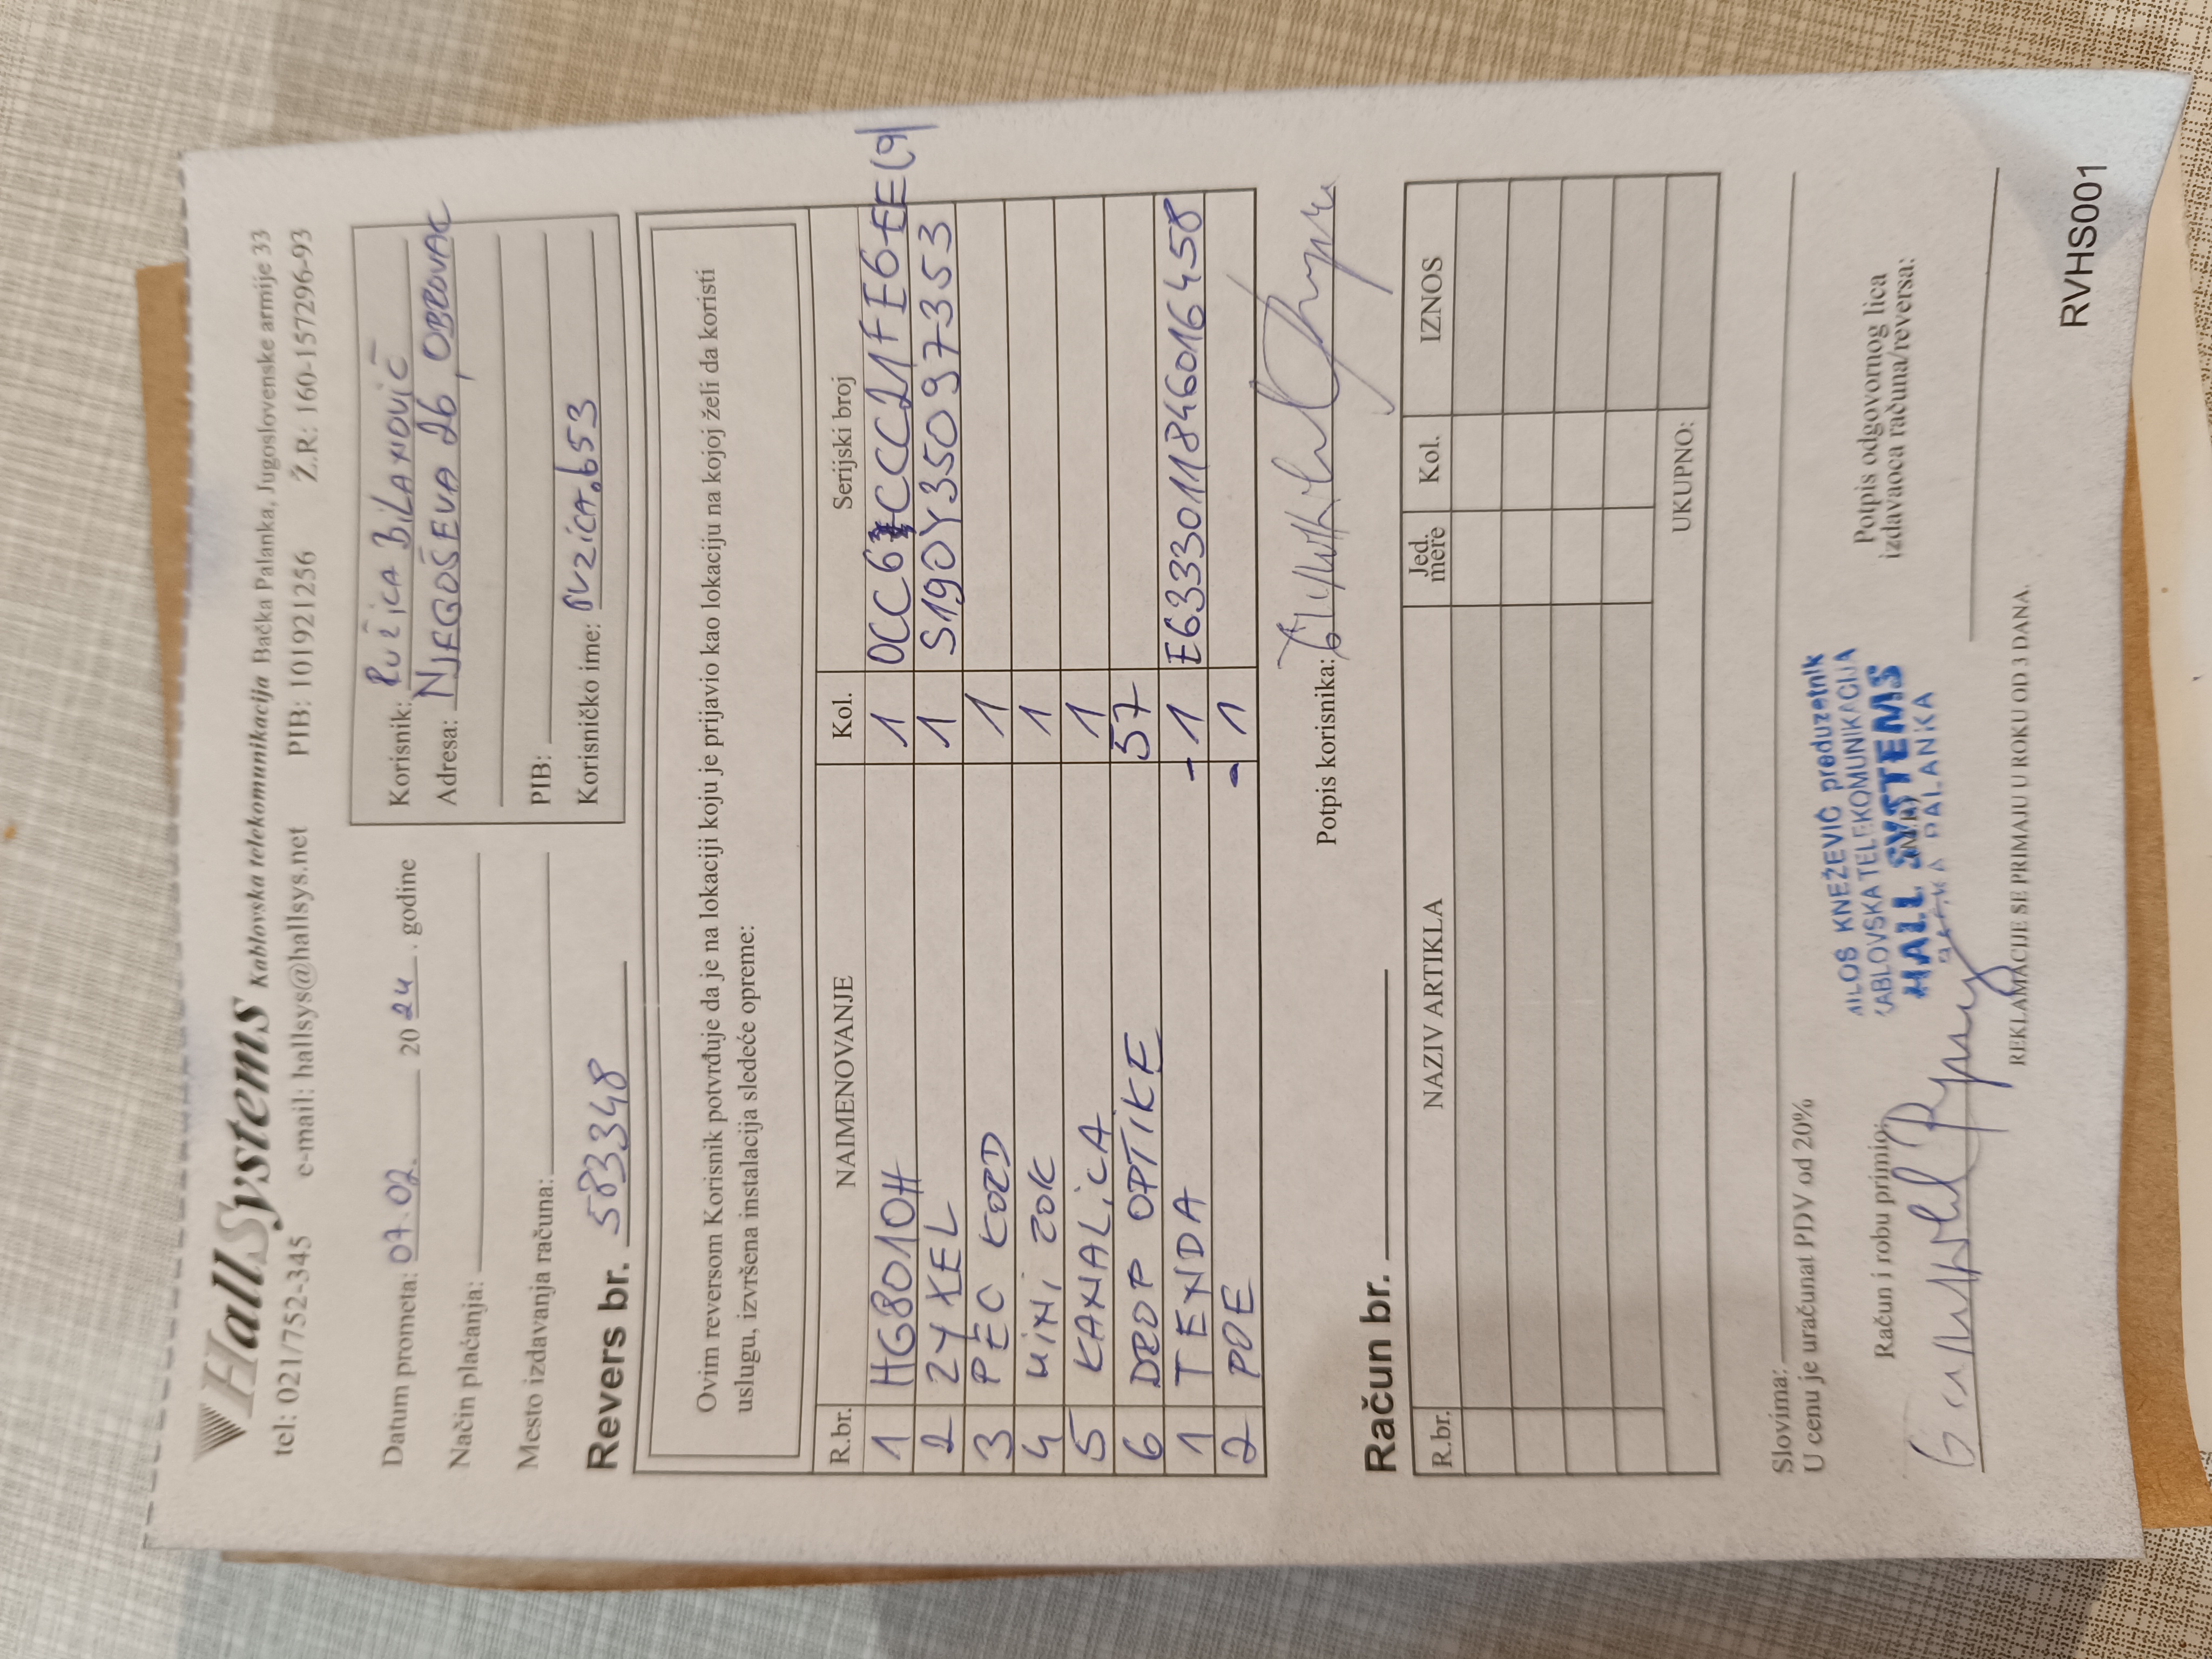 HallSystems Kablovska telekomunikacija Bačka Palanka, Jugoslovenske armije 33
tel: 021/752-345 e-mail: hallsys@hallsys.net PIB: 101921256 Ž.R: 160-157296-93
Datum prometa: 07.02. 2024. godine
Način plaćanja:
Mesto izdavanja računa:
Korisnik: RUŽICA BILANOVIĆ
Adresa: NJEGOŠEVA 26, OBROVAC
PIB:
Korisničko ime: RUZICA.653
Revers br. 583348
Ovim reversom Korisnik potvrđuje da je na lokaciji koju je prijavio kao lokaciju na kojoj želi da koristi
uslugu, izvršena instalacija sledeće opreme:
R.br. NAIMENOVANJE Kol. Serijski broj
1 HG8010H 1
2 ZYXEL 1 S190Y35097353
3 PEČ KORD 1
4 MINI ZOK 1
5 KANALICA 1
6 DROP OPTIKE 57
1 TENDA -1 E6333011846016458
2 POE -1
Potpis korisnika:
Račun br.
R.br. NAZIV ARTIKLA Jed. mere Kol. IZNOS
UKUPNO:
Slovima:
U cenu je uračunat PDV od 20%
Račun i robu primio:
MILOŠ KNEŽEVIĆ preduzetnik
KABLOVSKA TELEKOMUNIKACIJA
HALL SYSTEMS
BAČKA PALANKA
Potpis odgovornog lica
izdavaoca računa/reversa:
REKLAMACIJE SE PRIMAJU U ROKU OD 3 DANA.
RVHS001